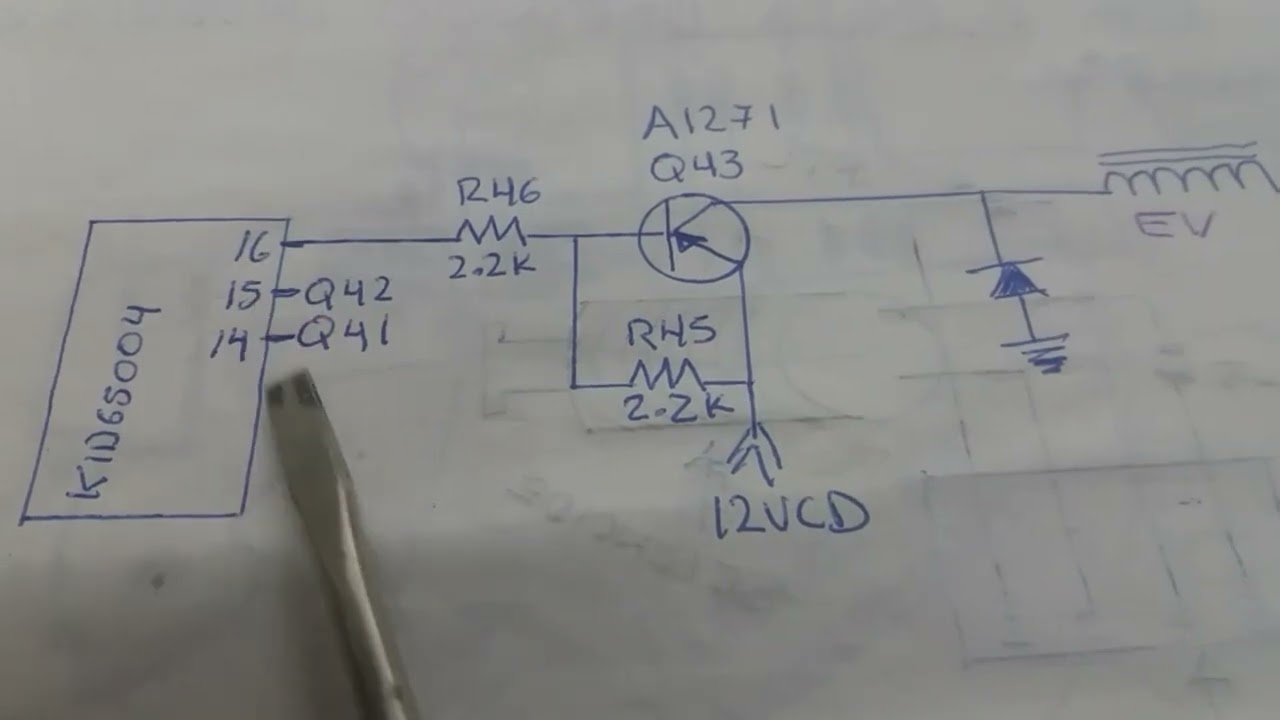 A1271
Q43
R46
2.2K
16
15 Q42
14 Q41
KID65004
R45
2.2K
12VCD
EV